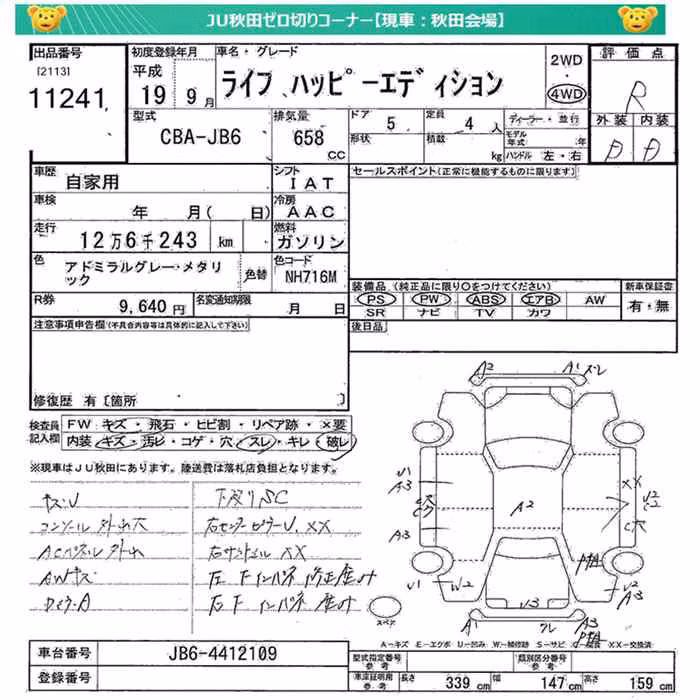 JU秋田ゼロ切りコーナー【現車：秋田会場】
出品番号
[2113]
11241
初度登録年月
平成
19 9月
車名・グレード
ライフ ハッピーエディション
2WD
・
4WD
評価点
R
外装 内装
D D
型式
CBA-JB6
排気量
658
CC
ドア 5
形状
定員 4 人
積載 kg
ディーラー・並行
モデル年式 年
ハンドル 左・右
車歴
自家用
シフト
IAT
車検
年 月( 日)
冷房
AAC
走行
12万6千243 km
燃料
ガソリン
色
アドミラルグレーメタリック
色替
色コード
NH716M
R券
9,640円
名変通知期限
月 日
セールスポイント(正常に機能するものに限ります)
装備品 (純正品に限り○をつけてください)
PS PW ABS エアB AW
SR ナビ TV カワ
新車保証書
有・無
後日品
注意事項申告欄(不具合内容等は具体的に記入して下さい)
修復歴 有〔箇所 〕
検査員記入欄
FW キズ・飛石・ヒビ割・リペア跡・×要
内装 キズ・汚レ・コゲ・穴・スレ・キレ・破レ
※現車はJU秋田にあります。陸送費は落札店負担となります。
キズU
コンソール外れ穴
ACパネル外れ
AWキズ
下廻りSC
右センターピラーU、XX
右サイドシル XX
左Fインパネ修正歴め
右Fインパネ歴め
A2
A1
スレ
U1
A3
XX
U2
A2
A3
穴
U1
W2
U3
U2
A3
A1
A3
スペア
A=キズ E=エクボ U=凹み W=補修跡 S=サビ C=腐食 XX=交換済
車台番号
JB6-4412109
登録番号
型式指定番号
参考
類別区分番号
参考
車庫証明用
参考
長さ 339 cm
幅 147 cm
高さ 159 cm